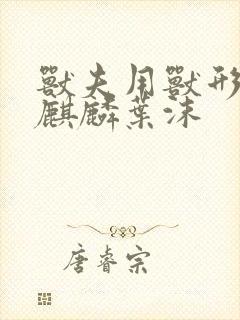 獸夫用獸形
麒麟葉沫
唐睿宗